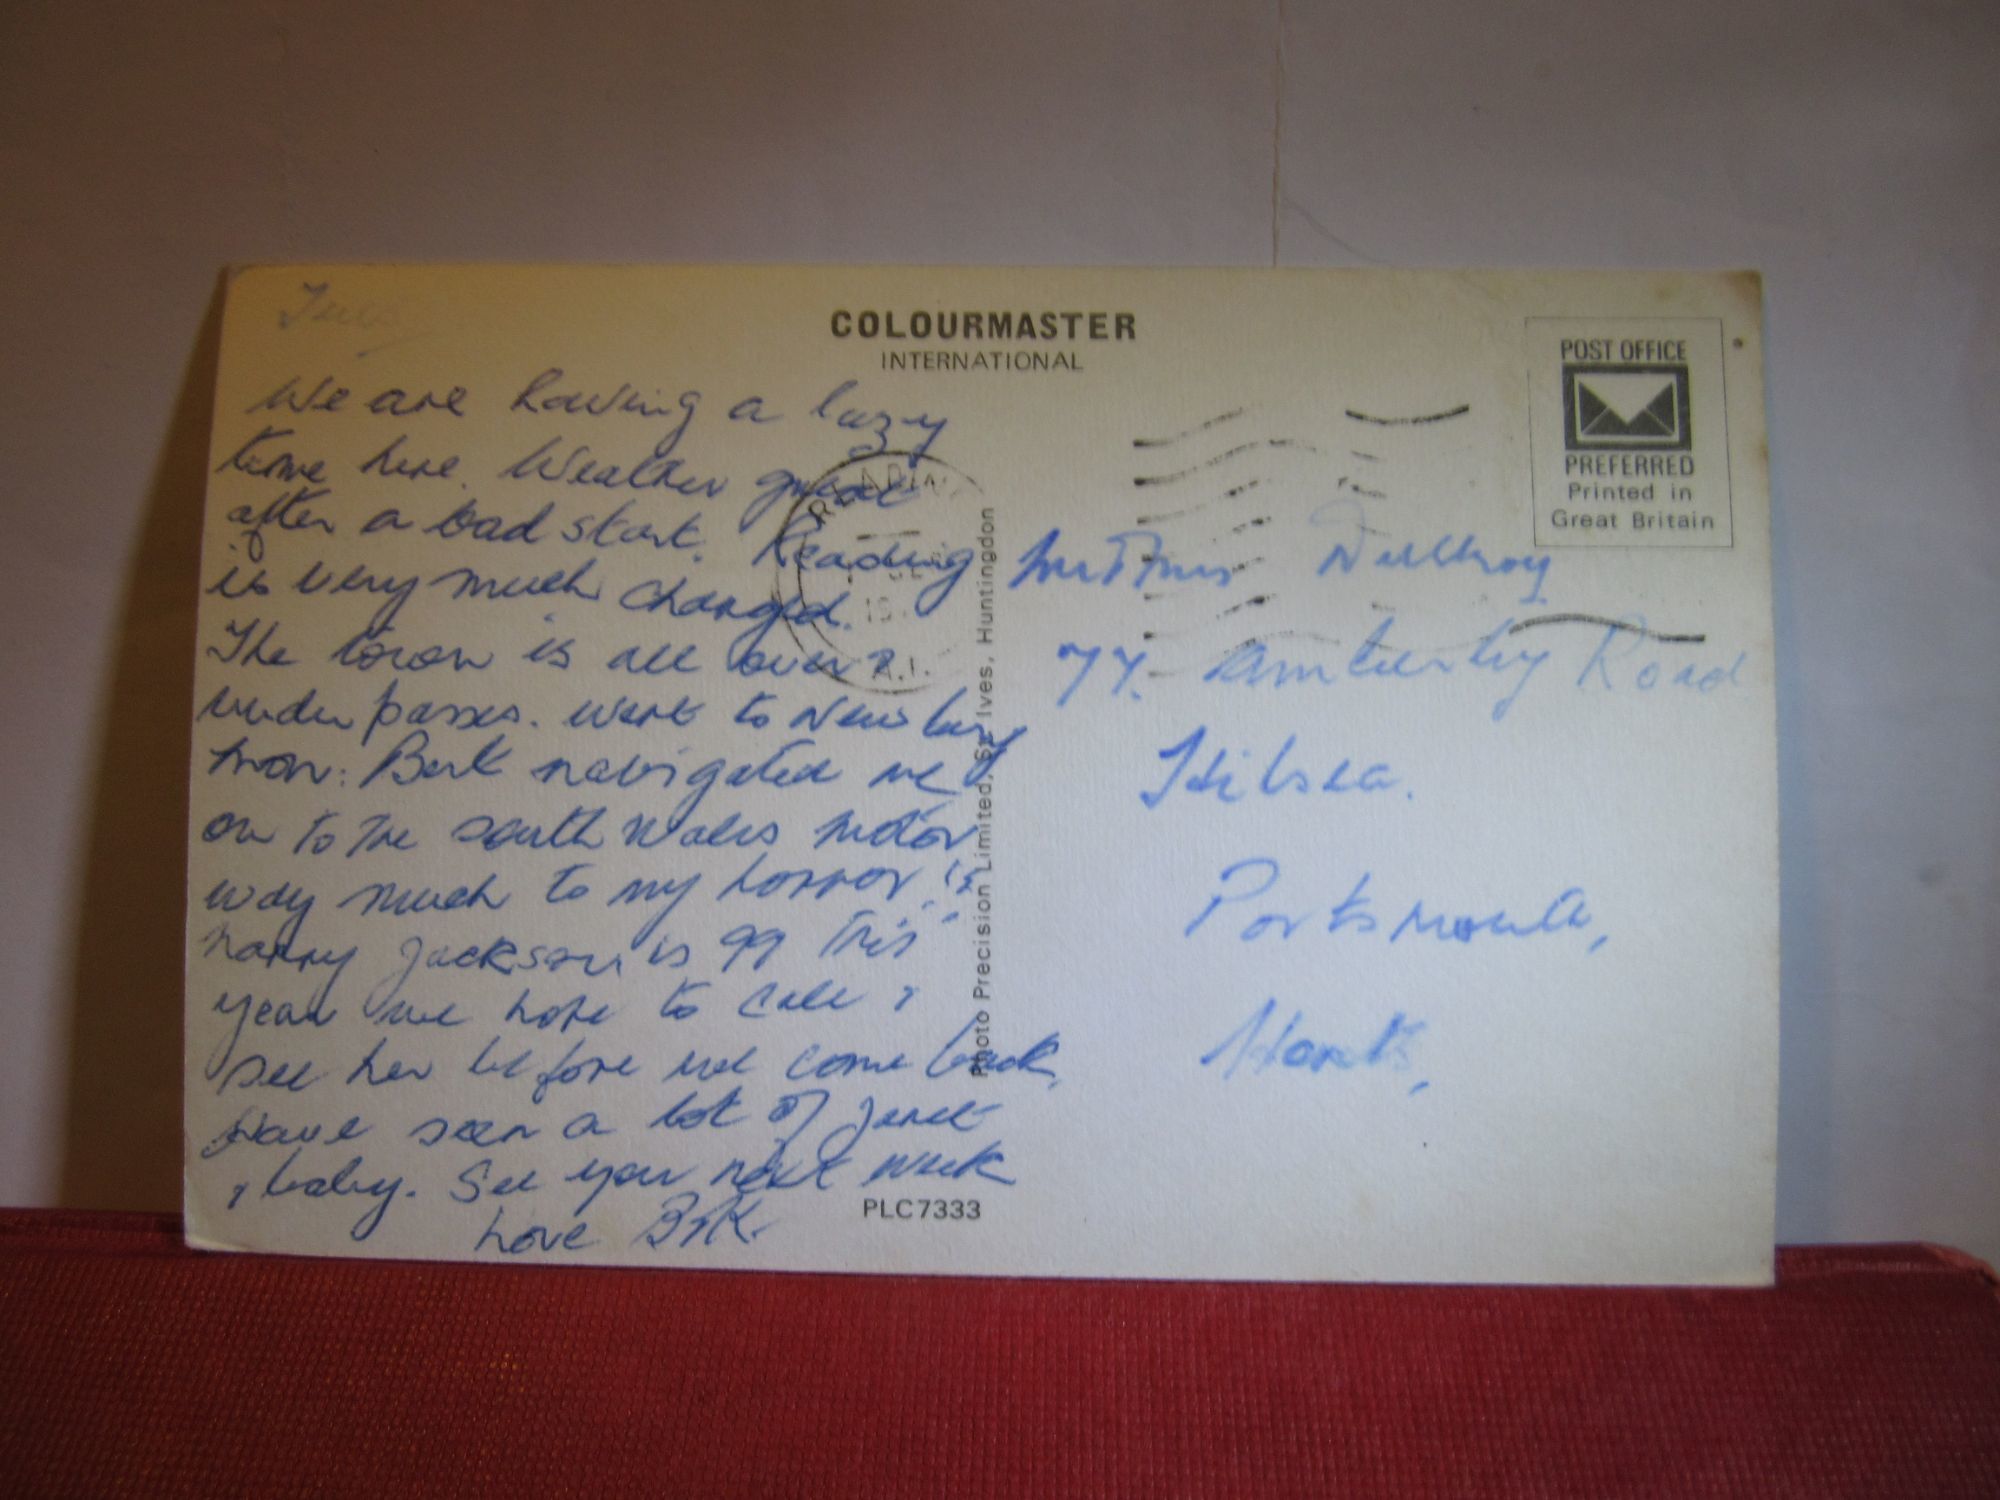 Tues
COLOURMASTER
INTERNATIONAL
We are having a lazy
time here. Weather great
after a bad start. Reading
is very much changed.
The town is all over &
under passes. Went to Newbury
Mon: Bert navigated me
on to the South Wales motor
way much to my horror!!
Harry Jackson is 99 this
year we hope to call &
see her before we come back,
Have seen a lot of Janet
& baby. See you next week
Love B & K.
PLC7333
Photo Precision Limited, St. Ives, Huntingdon
READING
A.I.
POST OFFICE
PREFERRED
Printed in
Great Britain
Mr & Mrs
77. Amberley Road
Hilsea.
Portsmouth,
Hants,